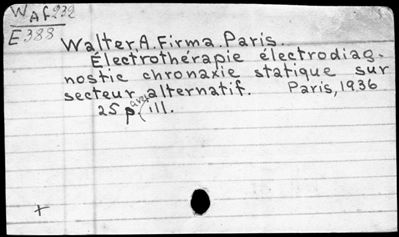 WAf232
E388
Walter, A. Firma. Paris.
Electrothérapie électrodiag-
nostic chronaxie statique sur
secteur alternatif. Paris, 1936
25 p. ill.